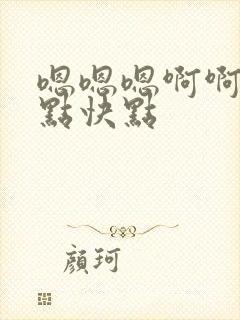 嗯嗯嗯啊啊
點快點
顏珂